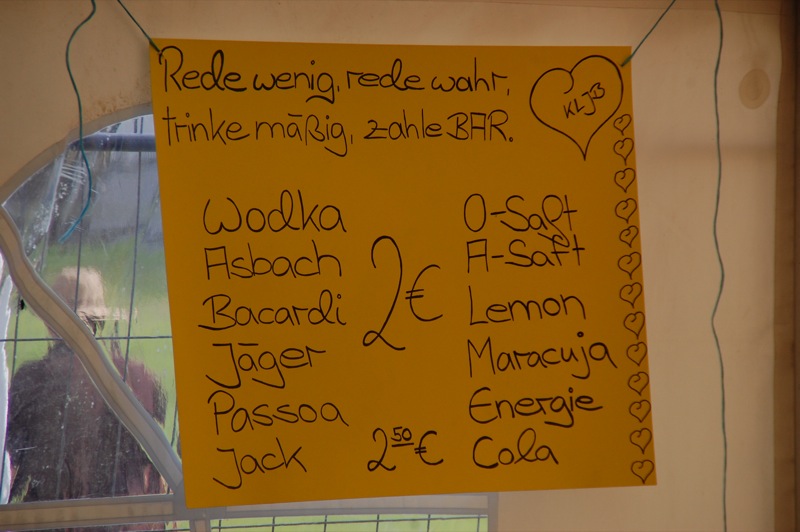 Rede wenig, rede wahr,
trinke mäßig, zahle BAR.
KLJB
Wodka
Asbach
Bacardi
Jäger
Passoa
Jack
2€
2 50 €
O-Saft
A-Saft
Lemon
Maracuja
Energie
Cola